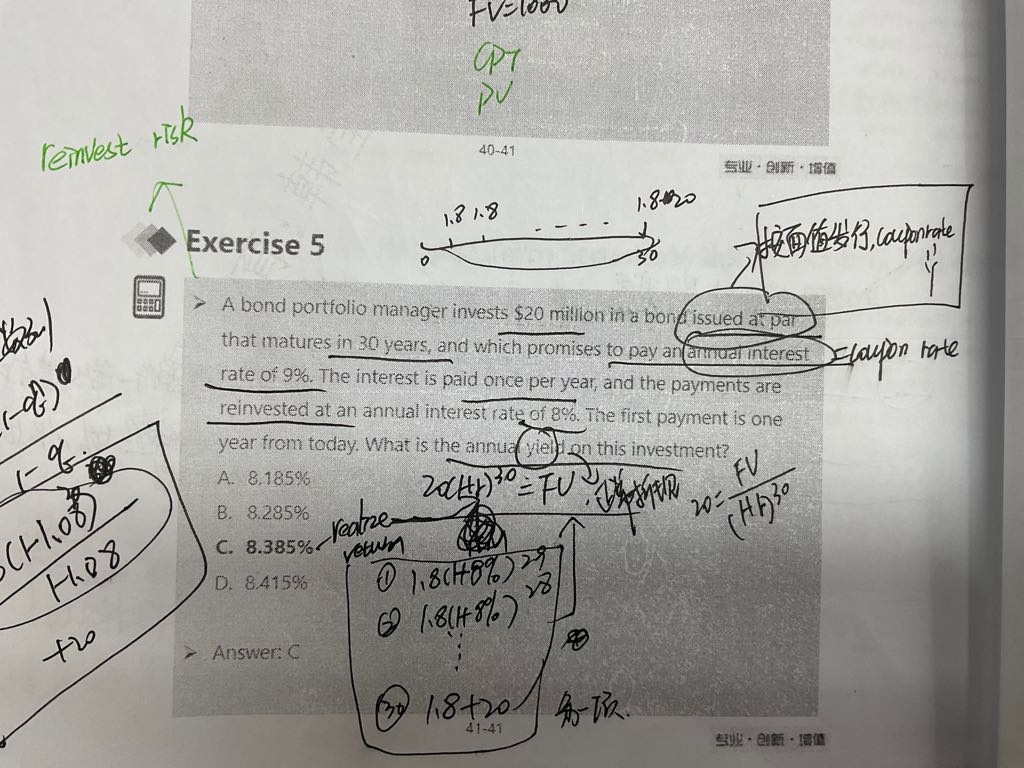 FV=1000
CPT
PV
reinvest risk
40-41
专业·创新·增值
1.8 1.8 1.8+20
0 30
按面值发行,coupon rate
Exercise 5
A bond portfolio manager invests $20 million in a bond issued at par
that matures in 30 years, and which promises to pay an annual interest
=coupon rate
rate of 9%. The interest is paid once per year, and the payments are
reinvested at an annual interest rate of 8%. The first payment is one
year from today. What is the annual yield on this investment?
A. 8.185%
20(1+r)^30 = FV
20=FV/(1+r)^30
B. 8.285%
realize
return
C. 8.385%
① 1.8(1+8%)^29
D. 8.415%
② 1.8(1+8%)^28
1-q
1-1.08
+20
Answer: C
㉚ 1.8+20
41-41
专业·创新·增值